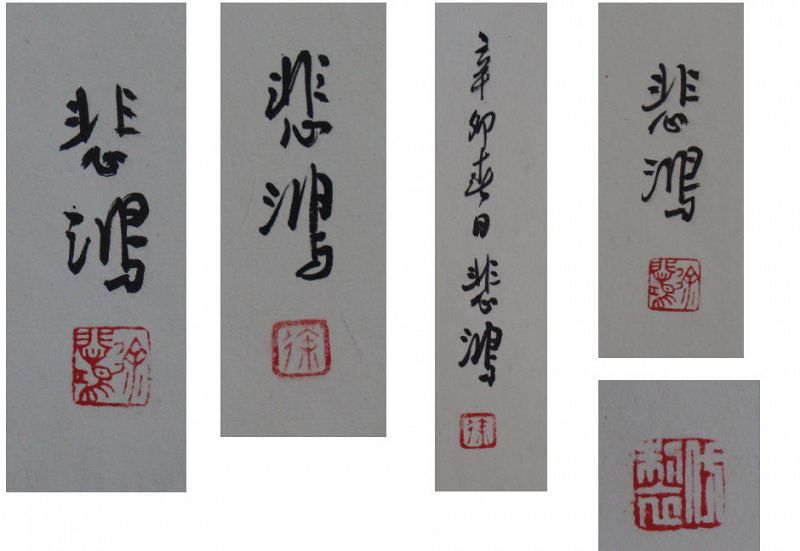 悲鴻
徐悲鴻
悲鴻
徐
辛卯春日悲鴻
徐
悲鴻
徐悲鴻